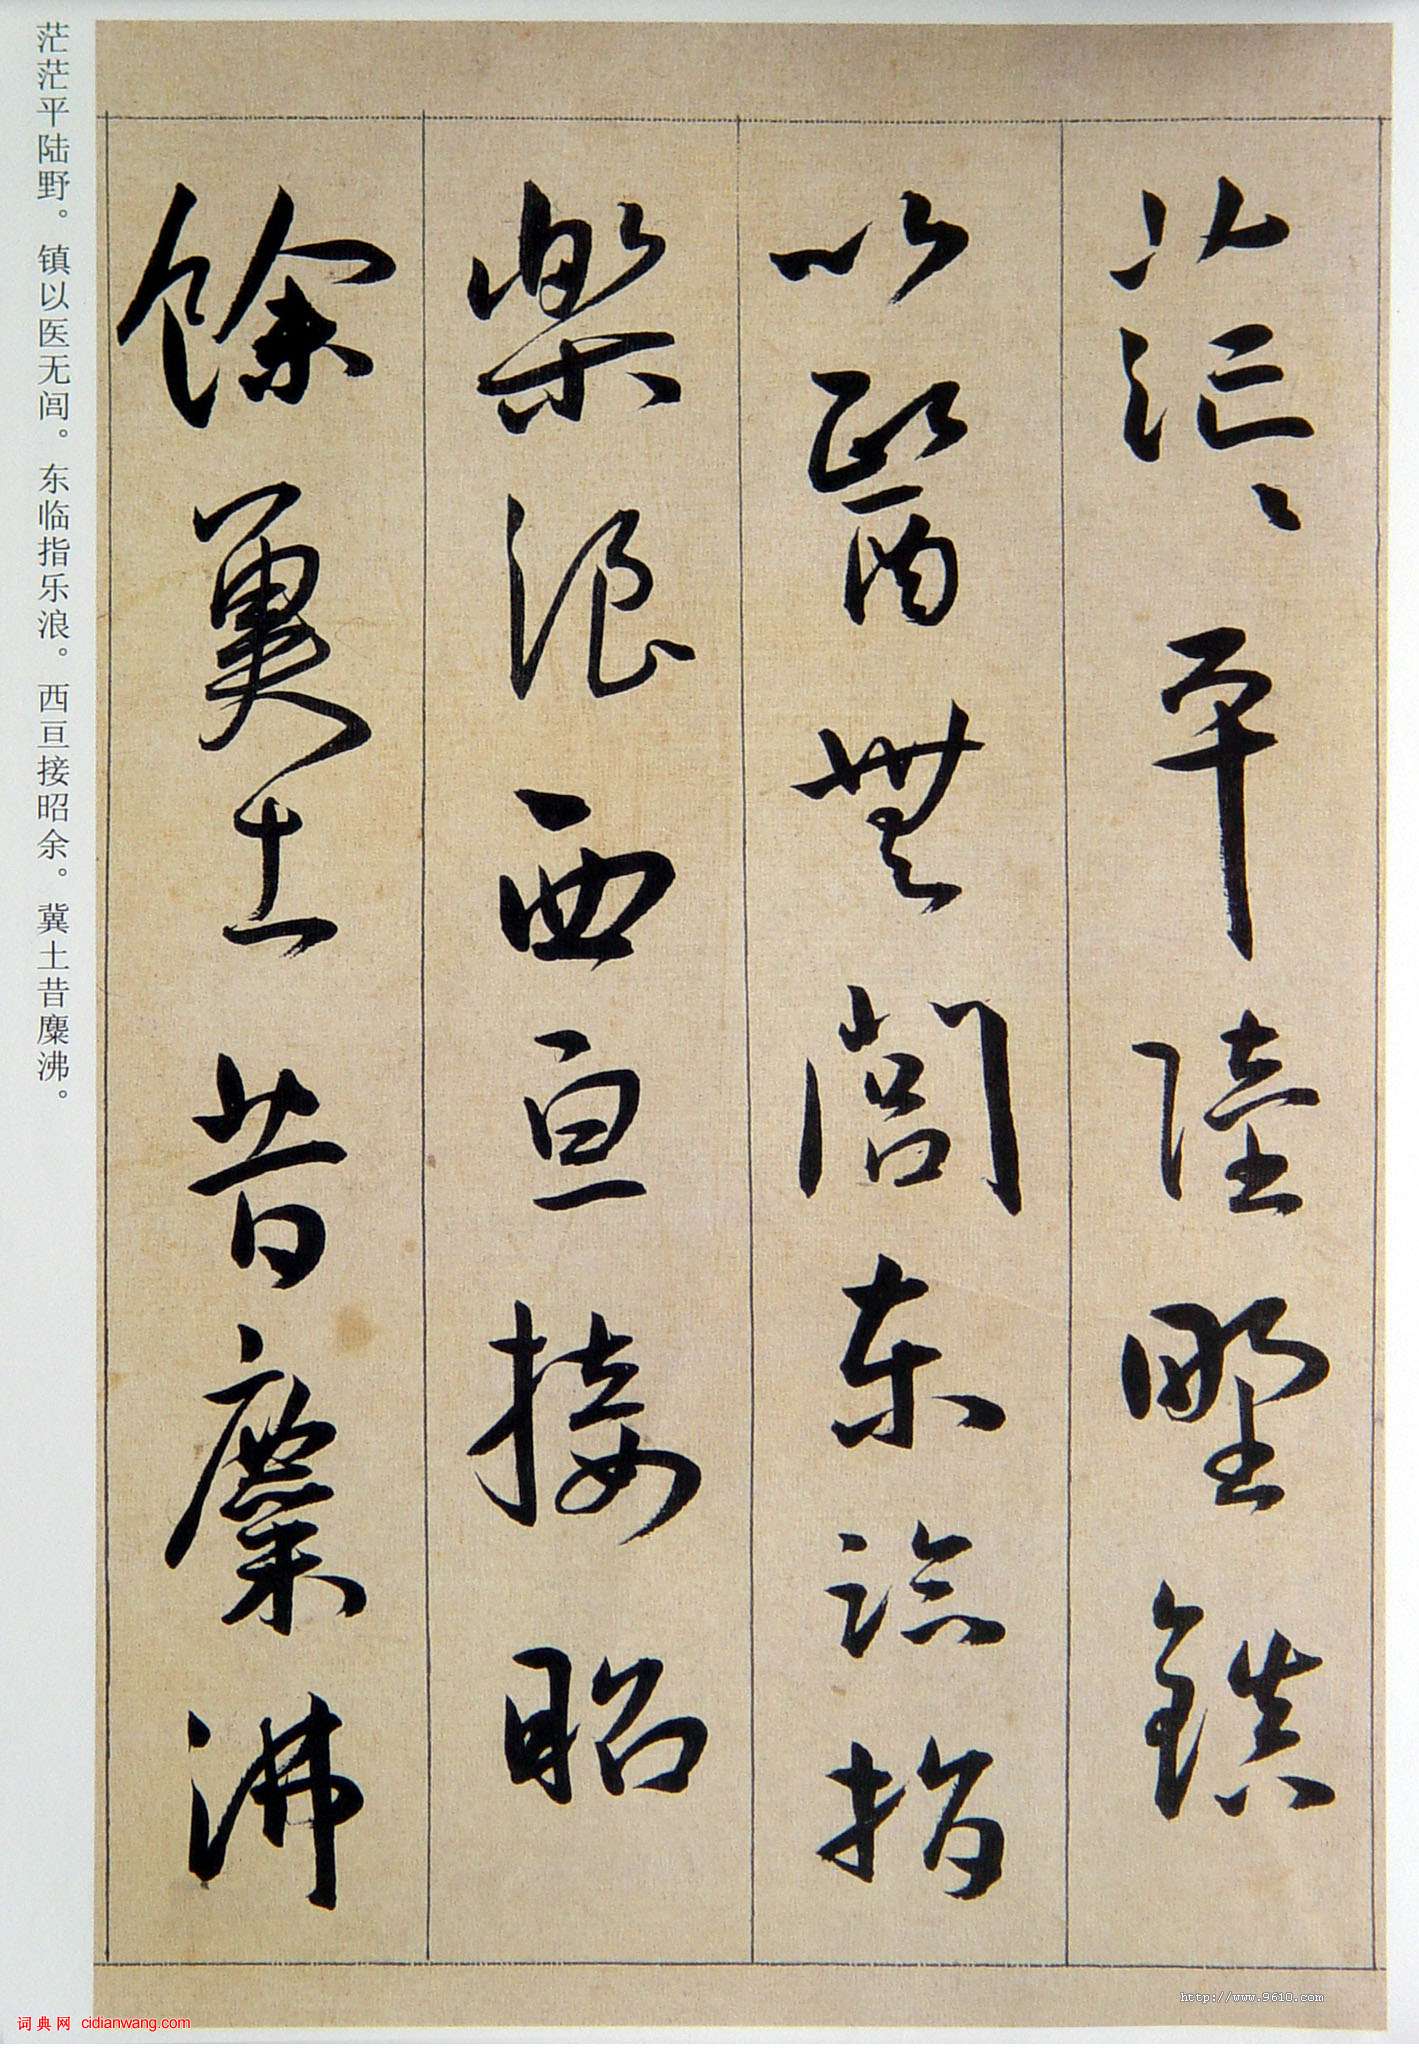 茫〻平陸野鎮
以醫無閭東臨指
樂浪西亘接昭
餘冀土昔麋沸
茫茫平陆野。镇以医无闾。东临指乐浪。西亘接昭余。冀土昔麋沸。
http://www.9610.com
词典网 cidianwang.com